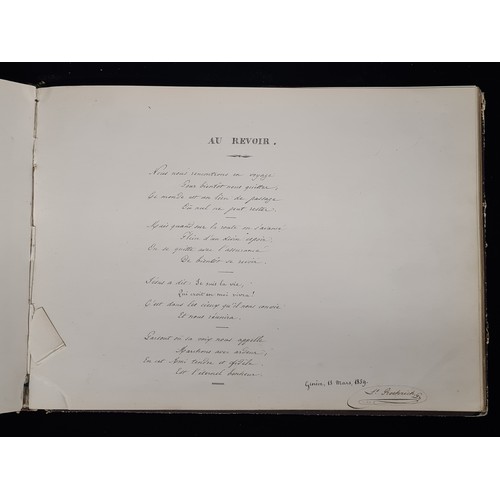 AU REVOIR.
Nous nous rencontrons en voyage
Pour bientôt nous quitter;
Le monde est un lieu de passage
Où nul ne peut rester.
Mais quand sur la route on s'avance
Plein d'un divin espoir,
On se quitte avec l'assurance
De bientôt se revoir.
Jésus a dit: Je suis la vie,
Qui croit en moi vivra!
C'est dans les cieux qu'il nous convie
Et nous réunira.
Partout où sa voix nous appelle
Marchons avec ardeur;
tendre et fidèle
Est l'éternel bonheur.
Mars